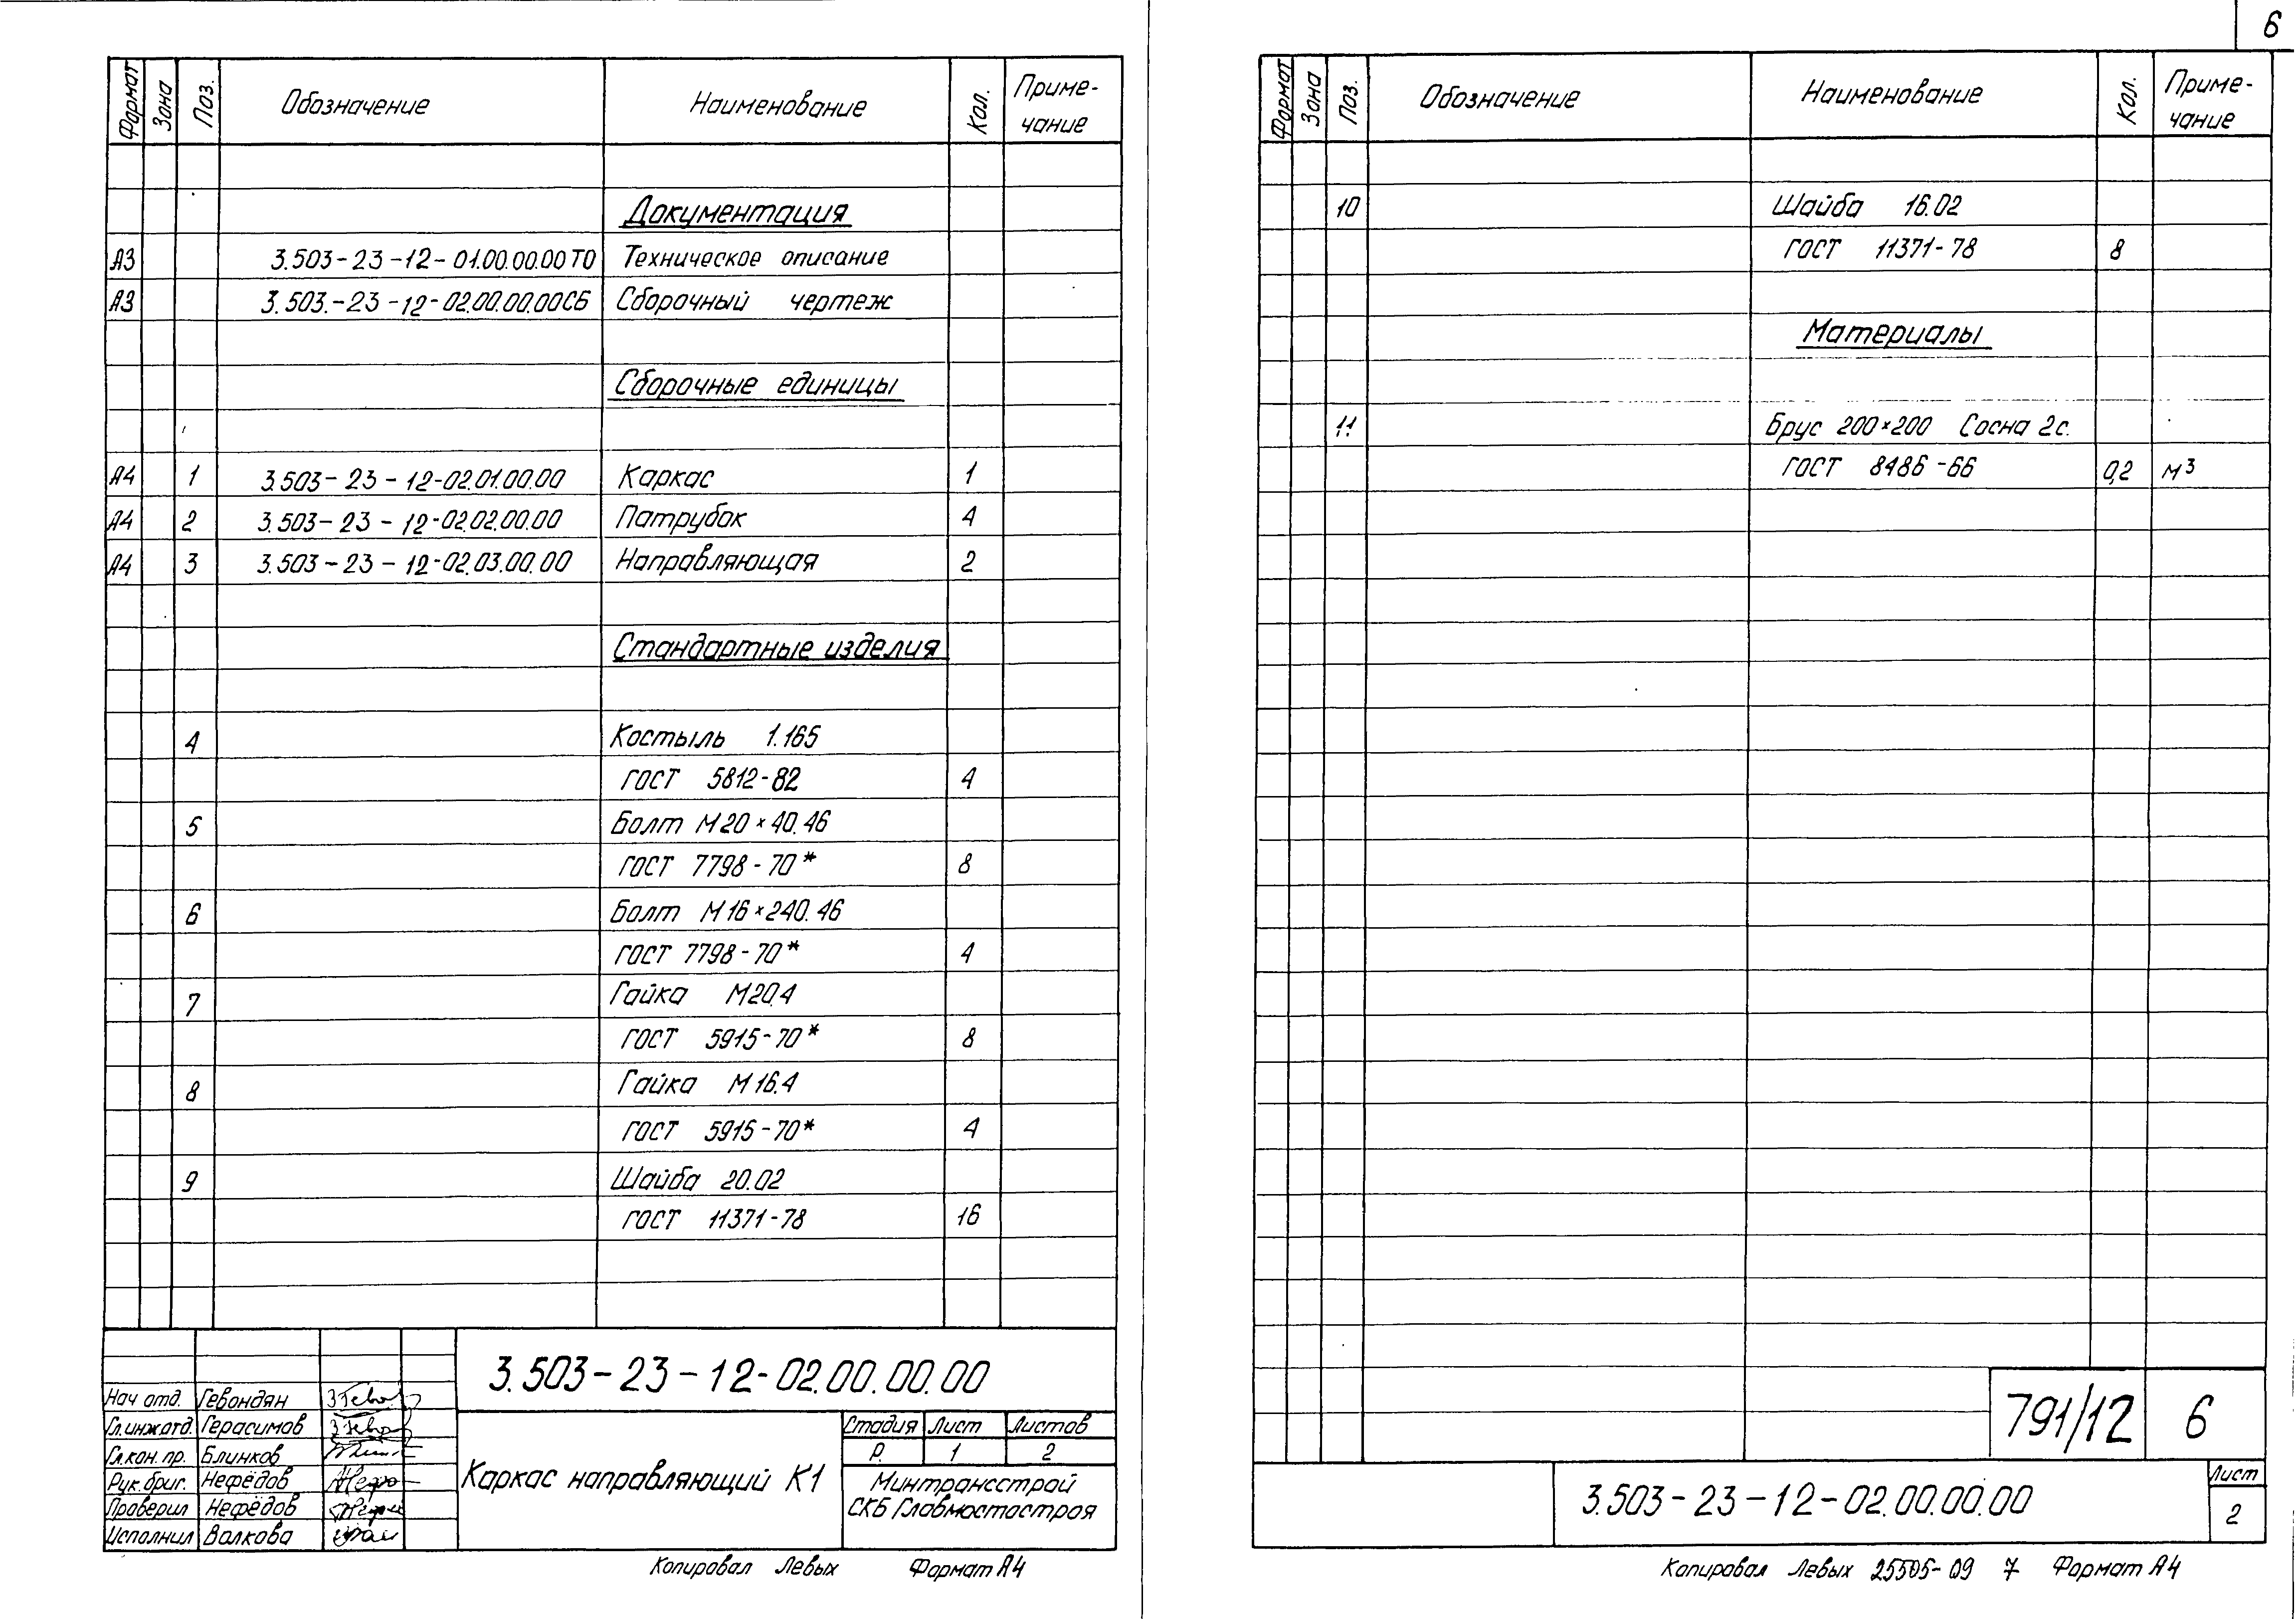 6
Формат Зона Поз. Обозначение Наименование Кол. Приме-
чание
Документация
А3 3.503-23-12-01.00.00.00ТО Техническое описание
А3 3.503.-23-12-02.00.00.00СБ Сборочный чертеж
Сборочные единицы
А4 1 3.503-23-12-02.01.00.00 Каркас 1
А4 2 3.503-23-12-02.02.00.00 Патрубок 4
А4 3 3.503-23-12-02.03.00.00 Направляющая 2
Стандартные изделия
4 Костыль 1.165
ГОСТ 5812-82 4
5 Болт М20×40.46
ГОСТ 7798-70* 8
6 Болт М16×240.46
ГОСТ 7798-70* 4
7 Гайка М20.4
ГОСТ 5915-70* 8
8 Гайка М16.4
ГОСТ 5915-70* 4
9 Шайба 20.02
ГОСТ 11371-78 16
3.503-23-12-02.00.00.00
Нач отд. Гевондян
Гл.инж.отд. Герасимов
Гл.кон.пр. Блинков
Рук.бриг. Нефёдов
Проверил Нефёдов
Исполнил Волкова
Каркас направляющий К1
Стадия Лист Листов
Р. 1 2
Минтрансстрой
СКБ Главмостостроя
Копировал Левых Формат А4
Формат Зона Поз. Обозначение Наименование Кол. Приме-
чание
10 Шайба 16.02
ГОСТ 11371-78 8
Материалы
11 Брус 200×200 Сосна 2с.
ГОСТ 8486-66 0,2 м³
791/12 6
3.503-23-12-02.00.00.00
Лист
2
Копировал Левых 25505-09 7 Формат А4